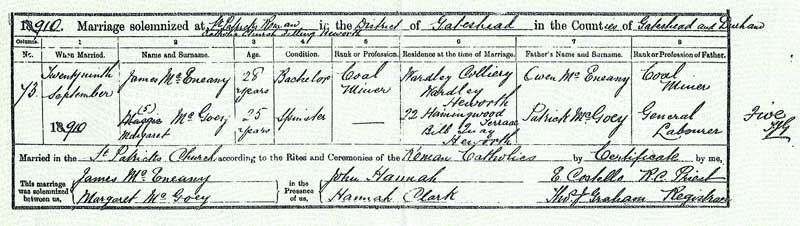 1910. Marriage solemnized at St Patricks Roman Catholic Church Felling Heworth in the District of Gateshead in the Counties of Gateshead and Durham
Columns. 1 2 3 4 5 6 7 8
No. When Married. Name and Surname. Age. Condition. Rank or Profession. Residence at the time of Marriage. Father's Name and Surname. Rank or Profession of Father.
73 Twenty ninth September 1910
James Mc Eneany 28 years Bachelor Coal Miner Wardley Colliery Wardley Heworth Owen Mc Eneany Coal Miner
(5) Maggie Margaret Mc Goey 25 years Spinster — 22 Terrace Bill Quay Heworth Patrick McGoey General Labourer
Five
Married in the St Patricks Church according to the Rites and Ceremonies of the Roman Catholics by Certificate by me,
This marriage was solemnized between us,
James Mc Eneany
Margaret Mc Goey
in the Presence of us,
John Hannah
Hannah Clark
E. Costello R.C. Priest
Thos. J Graham Registrar